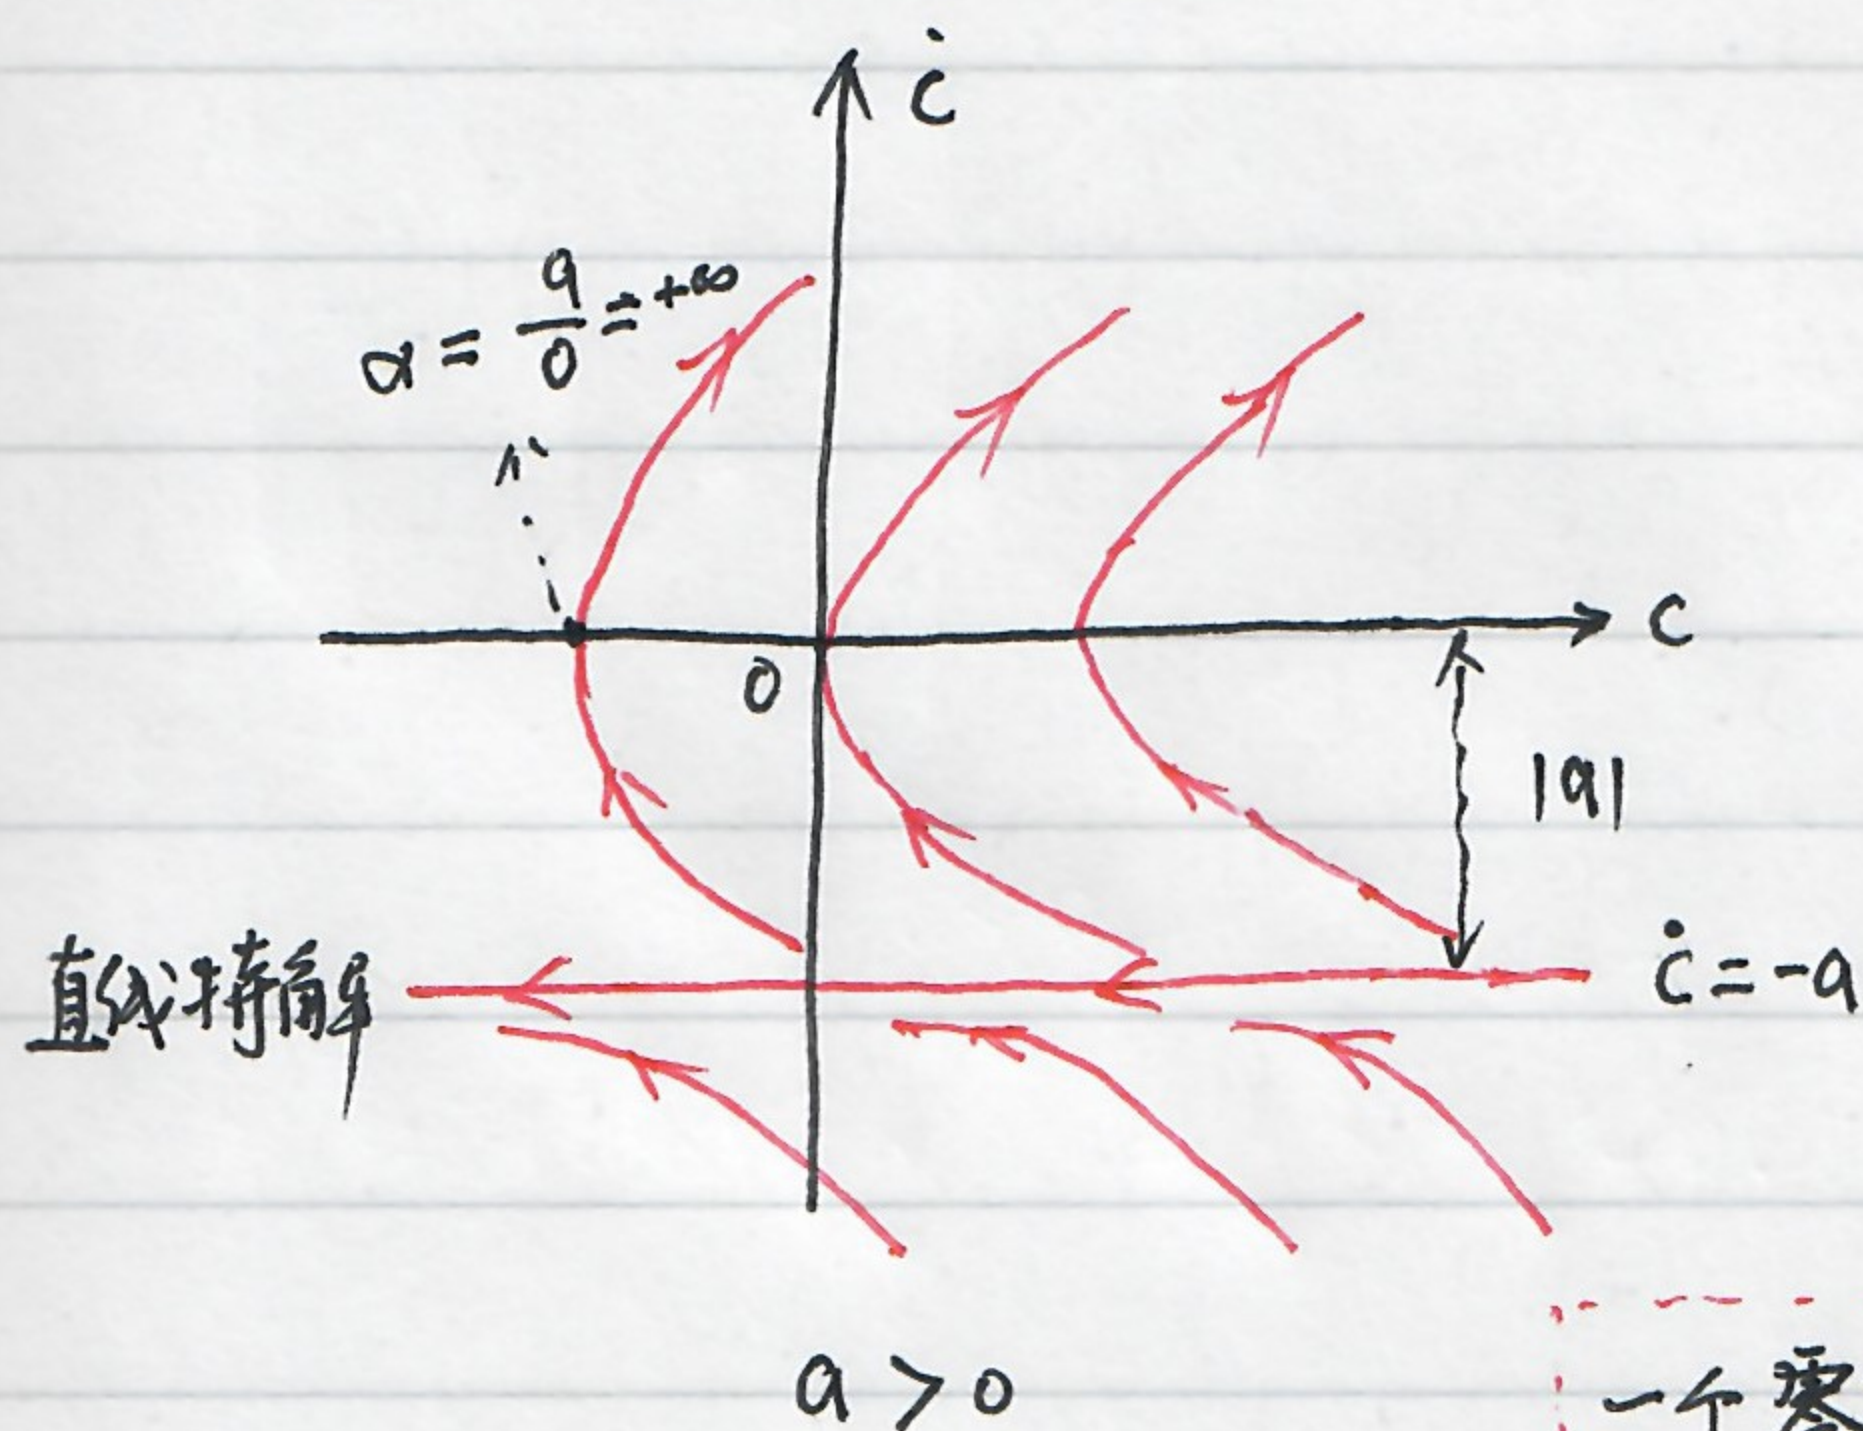 ċ
α = a/0 = +∞
c
0
|a|
直线特解
ċ = -a
a > 0
一个零